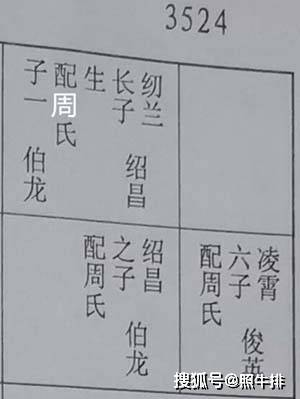 3524
纫兰
长子
绍昌
生
配周氏
子一 伯龙
凌霄
六子
俊英
配周氏
绍昌
之子
伯龙
配周氏
搜狐号@照牛排